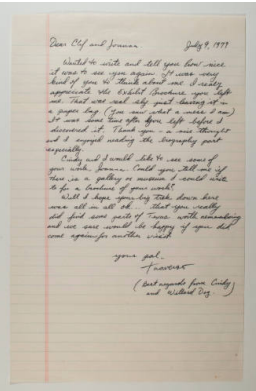 Dear Clif and Joanna    July 9, 1979
Wanted to write and tell you how nice
it was to see you again. It was very
kind of you to think about me. I really
appreciate the Exhibit Brochure you left
me. That was real shy just leaving it in
a paper bag (You saw what a mess I am)
It was some time after you left before I
discovered it. Thank you - a nice thought
and I enjoyed reading the biography part
especially.
Cindy and I would like to see some of
your work, Joanna. Could you tell me if
there is a gallery or museum I could write
to for a brochure of your work?
Well I hope your big trek down here
was all in all ok... that you really
did find some parts of worth remembering
and we sure would be happy if you did
come again for another visit.
your pal,
(Best regards from Cindy
and Dog.)